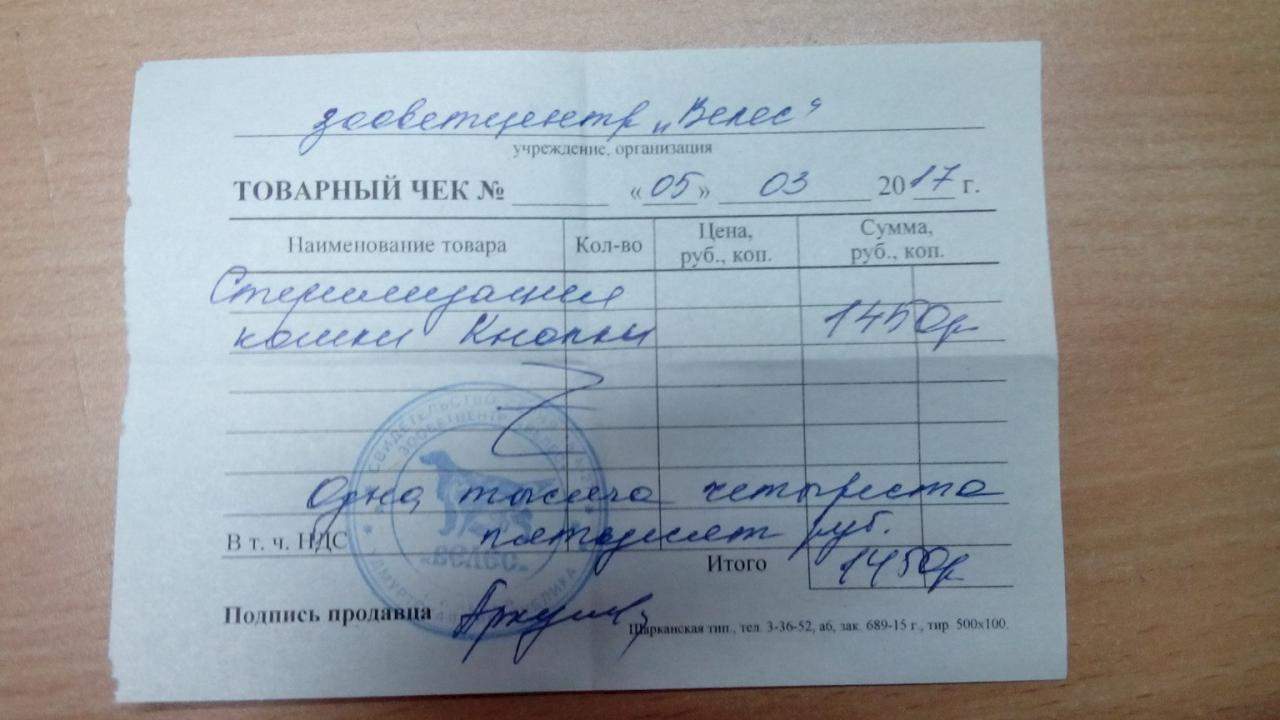 зооветцентр „Велес“
учреждение, организация
ТОВАРНЫЙ ЧЕК № «05» 03 2017 г.
Наименование товара Кол-во Цена, руб., коп. Сумма, руб., коп.
Стерилизация
кошки Кнопки 1450р
Одна тысяча четыреста
В т. ч. НДС пятьдесят руб.
Итого 1450р
Подпись продавца
Шарканская тип., тел. 3-36-52, а6, зак. 689-15 г., тир. 500х100.
СВИДЕТЕЛЬСТВО
ЗООВЕТЦЕНТР
«ВЕЛЕС»